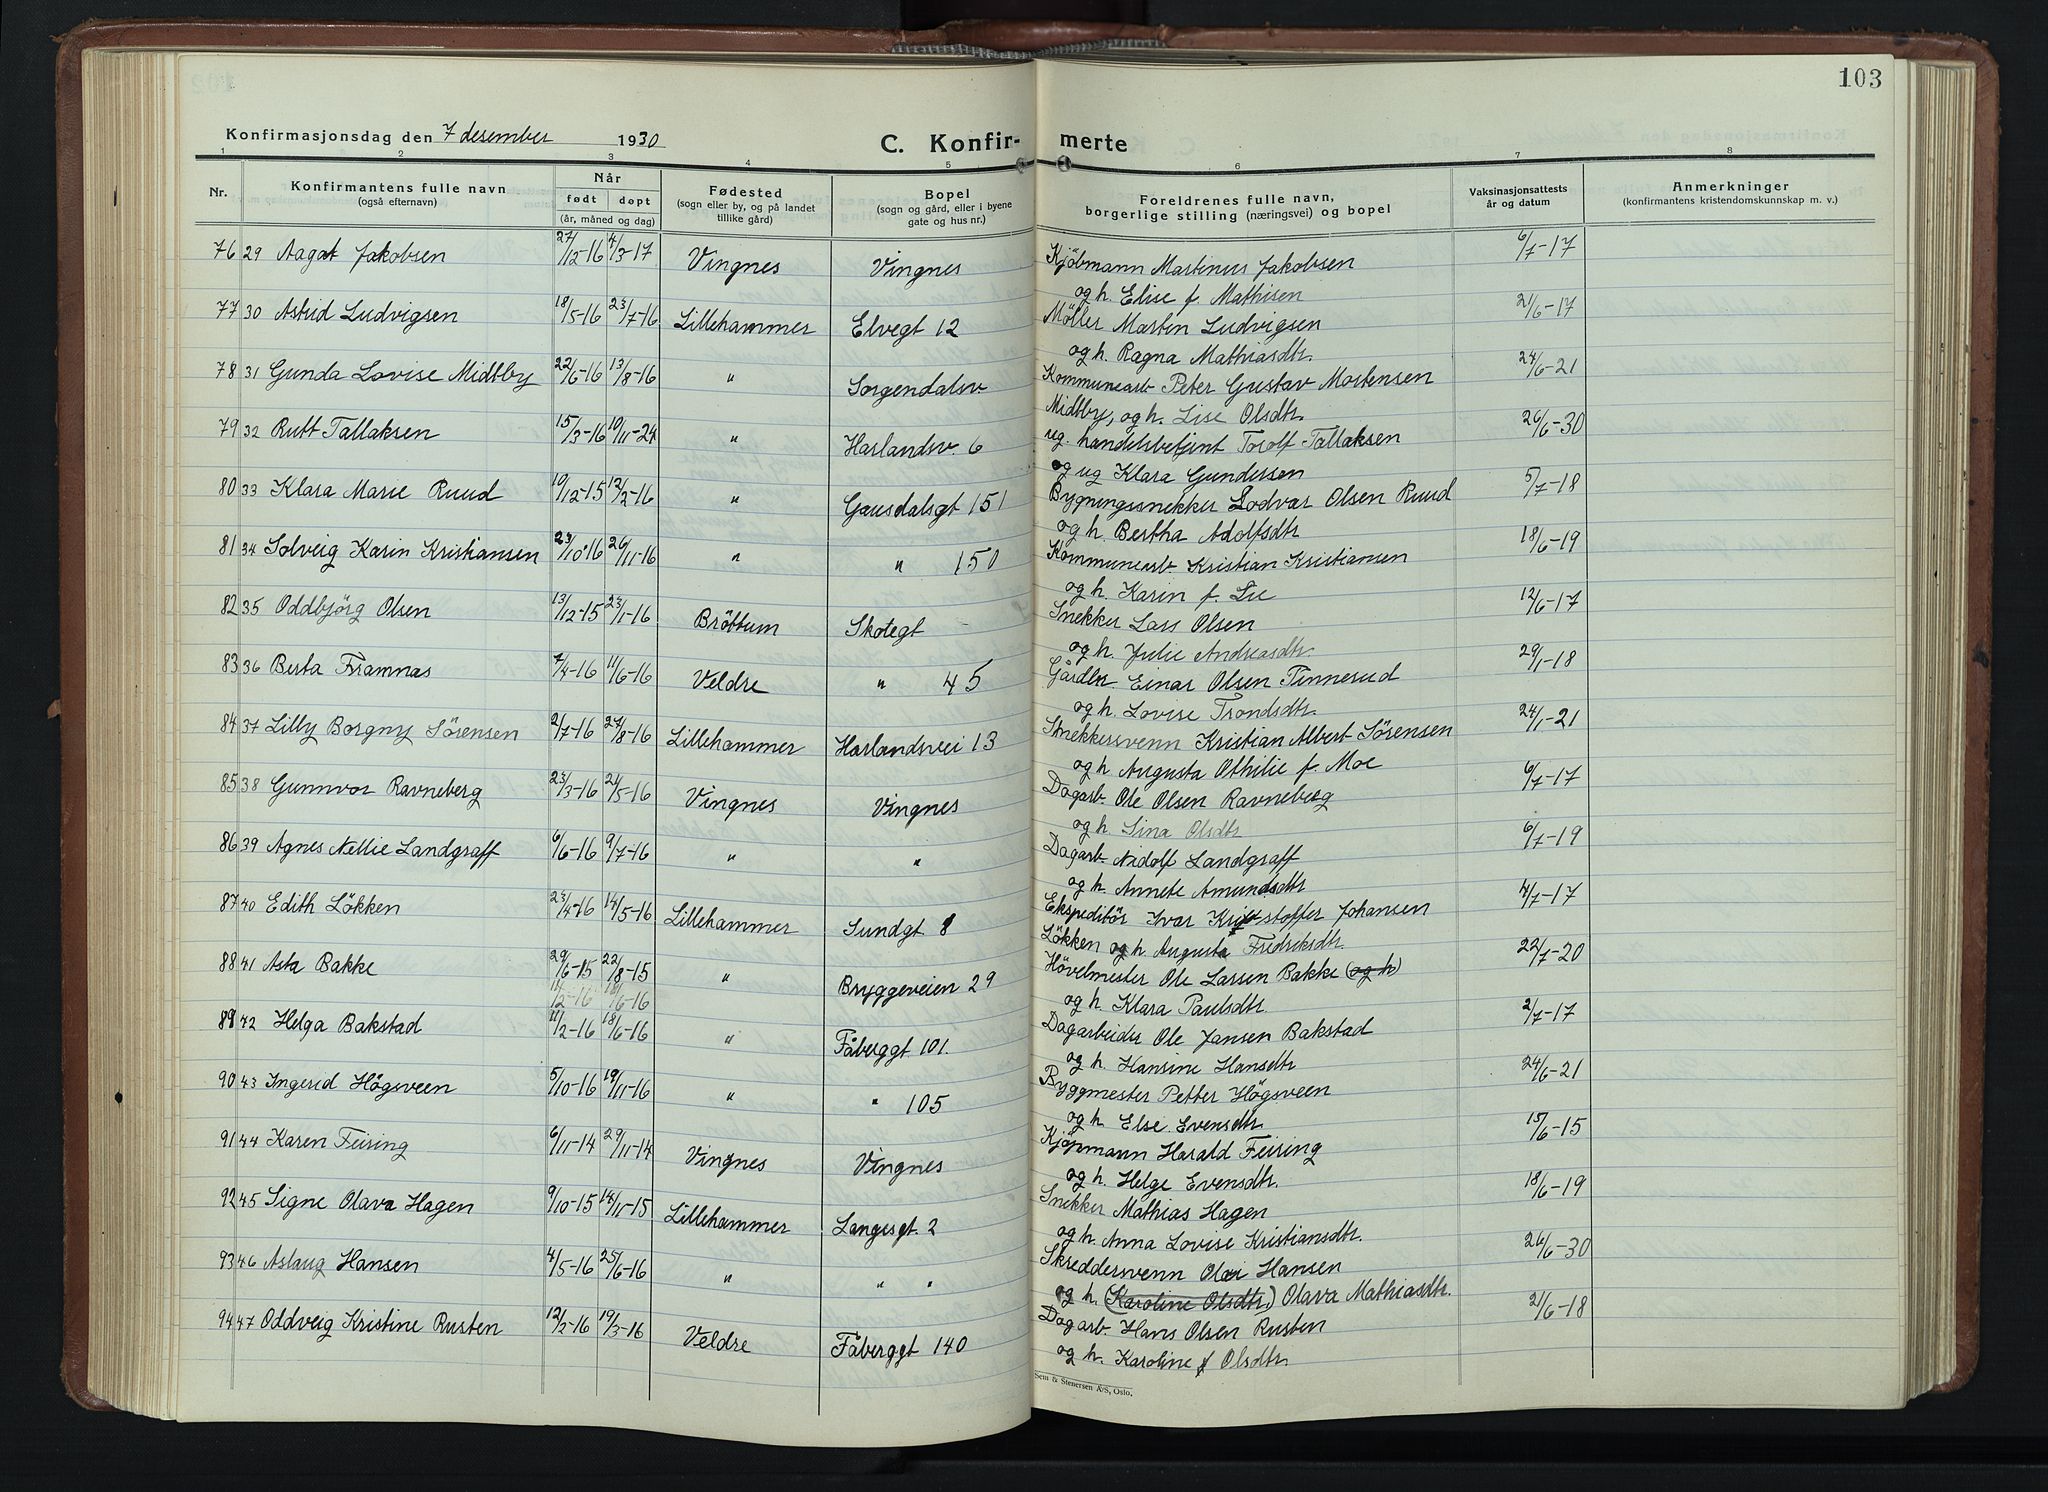 103
Konfirmasjonsdag den 7 desember 1930
C. Konfir- merte
1 2 3 4 5 6 7 8
Nr. Konfirmantens fulle navn (også efternavn) Når født døpt (år, måned og dag) Fødested (sogn eller by, og på landet tillike gård) Bopel (sogn og gård, eller i byene gate og hus nr.) Foreldrenes fulle navn, borgerlige stilling (næringsvei) og bopel Vaksinasjonsattests år og datum Anmerkninger (konfirmantens kristendomskunnskap m. v.)
76 29 Aagat Jakobsen 27/12-16 4/3-17 Vingnes Vingnes Kjöbmann Martinus Jakobsen 6/7-17
og h. Elise f. Mathisen
77 30 Astrid Ludvigsen 18/5-16 23/7-16 Lillehammer Elvegt 12 Möller Martin Ludvigsen 21/6-17
og h. Ragna Mathiasdtr.
78 31 Gunda Lovise Midtby 22/6-16 13/8-16 " Sorgendalsv. Kommunearb Peter Gustav Mortensen 24/6-21
Midtby, og h. Lise Olsdtr.
79 32 Rutt Tallaksen 15/3-16 10/11-24 " Harlandsv. 6 ug. handelsbetjent Torolf Tallaksen 26/6-30
og ug Klara Gundersen
80 33 Klara Marie Ruud 19/12-15 12/2-16 " Gausdalsgt 151 Bygningssnekker Lodvar Olsen Ruud 5/7-18
og h. Bertha Adolfsdtr
81 34 Solveig Karin Kristiansen 23/10-16 26/11-16 " " 150 Kommunearb Kristian Kristiansen 18/6-19
og h. Karin f. Lie
82 35 Oddbjörg Olsen 13/12-15 23/1-16 Bröttum Skotegt - Snekker Lars Olsen 12/6-17
og h. Julie Andreasdtr.
83 36 Berta Framnas 7/4-16 11/6-16 Veldre " 45 Gårdbr. Einar Olsen Tinnerud 29/1-18
og h. Lovise Trondsdtr.
84 37 Lilly Borgny Sörensen 2/7-16 27/8-16 Lillehammer Harlandsvei 13 Snekkersvenn Kristian Albert Sörensen 24/1-21
og h Augusta Othilie f. Moe
85 38 Gunnvor Ravneberg 23/3-16 24/5-16 Vingnes Vingnes Dagarb. Ole Olsen Ravneberg 6/7-17
og h. Sina Olsdtr
86 39 Agnes Nellie Landgraff 6/6-16 9/7-16 " " Dagarb. Nidolf Landgraff 6/7-19
og h. Annete Amundsdtr
87 40 Edith Lökken 23/4-16 14/5-16 Lillehammer Sundgt 8 Ekspeditör Ivar Kristoffer Johansen 4/7-17
Lökken og h Augusta Fredriksdtr.
88 41 Asta Bakke 29/6-15 22/8-15 " Bryggeveien 29 Hövelmester Ole Larsen Bakke (og h) 22/7-20
11/2-16 18/6-16 og h. Klara Paulsdtr.
89 42 Helga Bakstad 11/2-16 18/6-16 " Fåberggt 101. Dagarbeider Ole Jansen Bakstad 2/7-17
og h. Hansine Hansdtr
90 43 Ingerid Högsveen 5/10-16 19/11-16 " " 105 Byggmester Petter Högsveen 24/6-21
og h. Else Evensdtr.
91 44 Karen Feiring 6/11-14 29/11-14 Vingnes Vingnes Kjöpmann Harald Feiring 15/6-15
og h. Helge Evensdtr.
92 45 Signe Olava Hagen 9/10-15 14/11-15 Lillehammer Langesgt. 2 Snekker Mathias Hagen 18/6-19
og h. Anna Lovise Kristiansdtr.
93 46 Aslaug Hansen 4/5-16 25/6-16 " " " Skreddersvenn Olai Hansen 26/6-30
og h. (Karoline Olsdtr.) Olava Mathiasdtr.
94 47 Oddveig Kristine Rusten 12/2-16 19/3-16 Veldre Fåberggt 140 Dagarb. Hans Olsen Rusten 21/6-18
og h. Karoline f Olsdtr.
Sem & Stenersen A/S, Oslo.